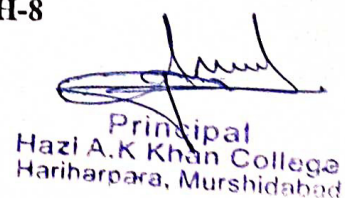 H-8
Principal
Hazi A.K Khan College
Hariharpara, Murshidabad